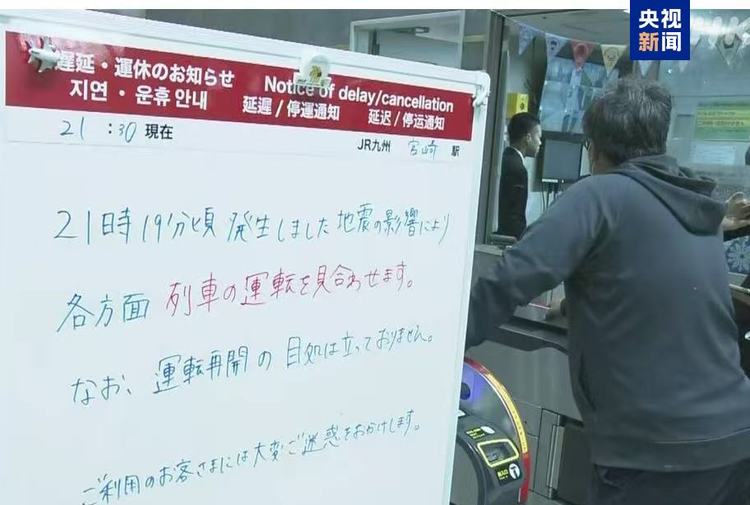 央视
新闻
遅延・運休のお知らせ
Notice of delay/cancellation
지연・운휴 안내
延遲/停運通知
延迟/停运通知
21:30 現在
JR九州 宮崎 駅
21時19分頃 発生しました地震の影響により
各方面 列車の運転を見合わせます。
なお、運転再開の目処は立っておりません。
ご利用のお客さまには大変ご迷惑をおかけします。